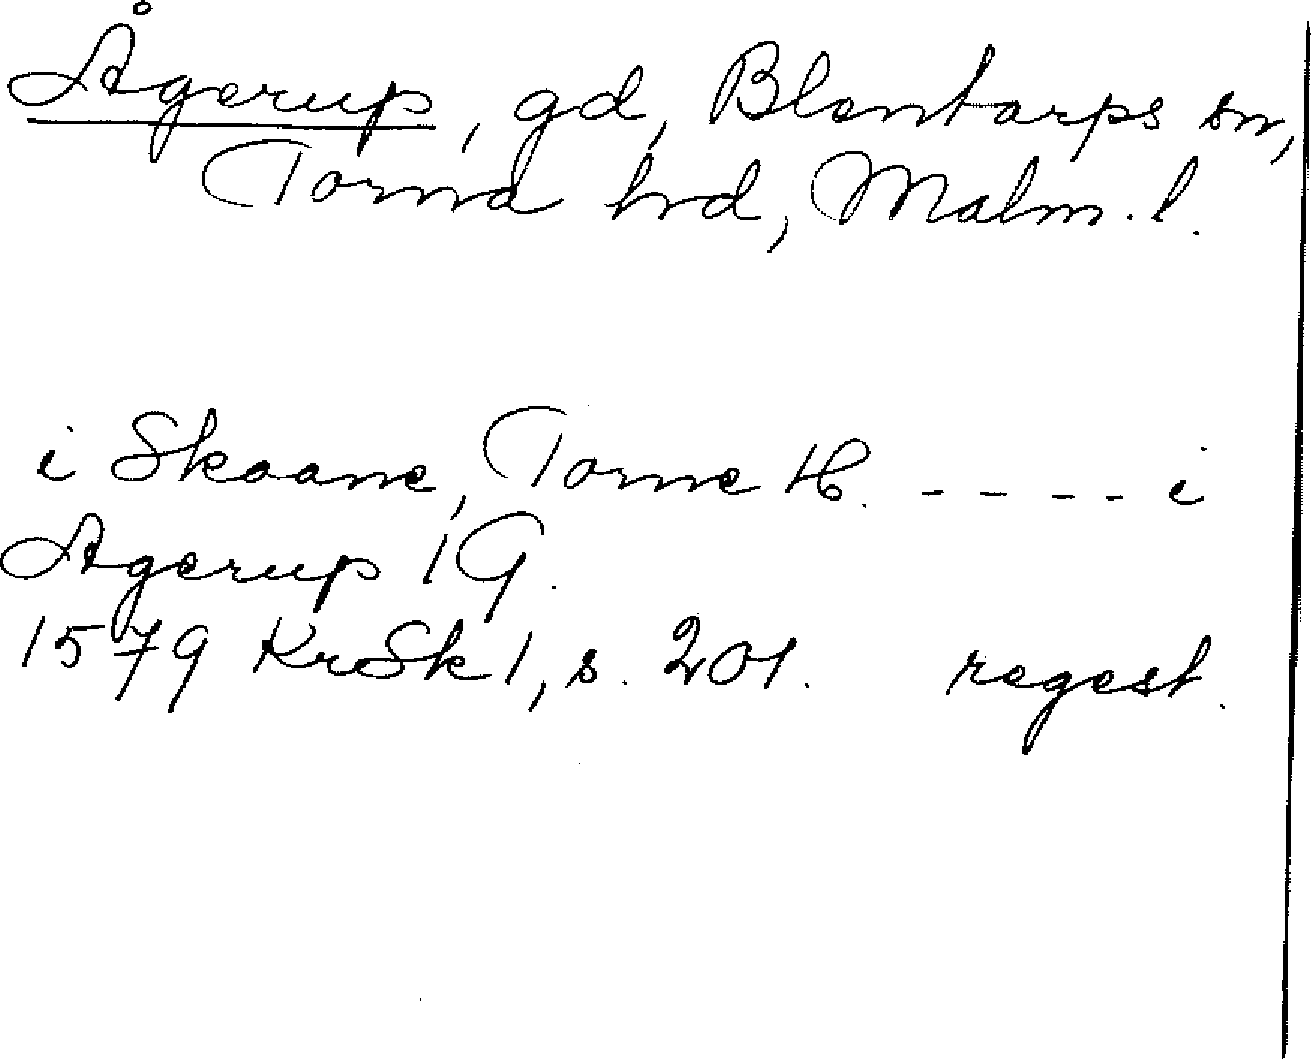 Ågerup, gd, Blentarps sn,
Torna hrd, Malm. l.
i Skaane, Torne H. ---- i
Agerup 1 G.
1579 KrSk 1, s. 201. regest.